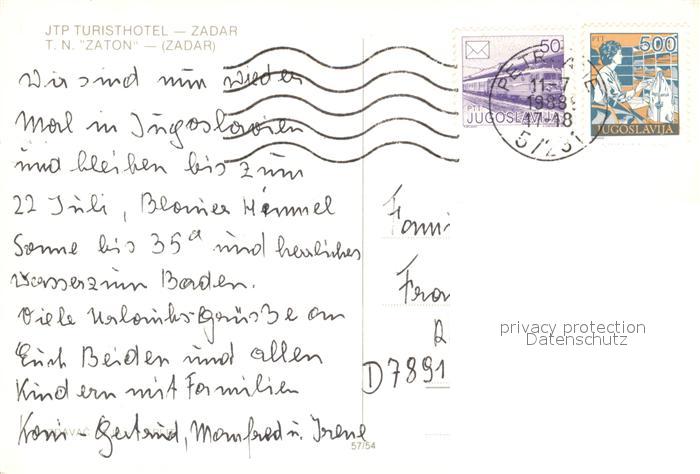 JTP TURISTHOTEL — ZADAR
T. N. "ZATON" — (ZADAR)
Wir sind nun wieder
Mal in Jugoslavien
und bleiben bis zum
22 Juli, Blauer Himmel
Sonne bis 35° und herrliches
Wasser zum Baden.
Viele Urlaubs-Grüsse an
Euch Beiden und allen
Kindern mit Familien
Gertrud, Manfred u. Irene
57/54
50
PTT
JUGOSLAVIJA
11-7
1988
17-18
PTT
500
JUGOSLAVIJA
Fami
Fra
D7891
privacy protection
Datenschutz